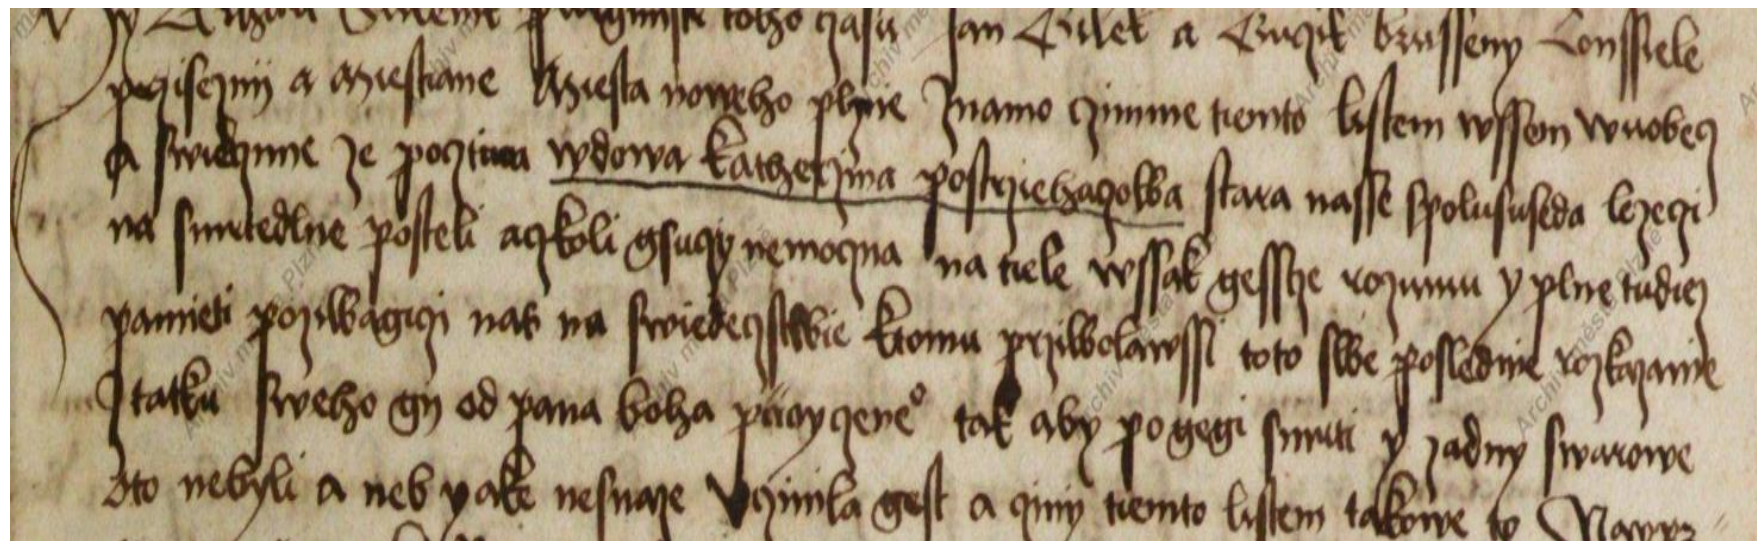 toho czasu Jan a brusseny Conssiele
przisezny a Miestiane Miesta noweho plznie Znamo czinime tiemto listem wssem wuobecz
A swiedczime ze pocztiwa wdowa Katherzina postrziehaczolka stara nasse spolususeda lezeczi
na smrtedlne posteli aczkoli gsuczy nemoczna na tiele wssak gesscze rozumu y plne tudiez
pamieti pozilbagiczi nas na swiedecztwie ktomu przilbolawssi toto slbe poslednie rozkazanie
Statku sweho gij od pana boha puoyczeneo tak aby po gegi smrti y zadny swarowe
oto nebyli a neb yake nesnaze Vczinila gest a cziny tiemto listem takowe to